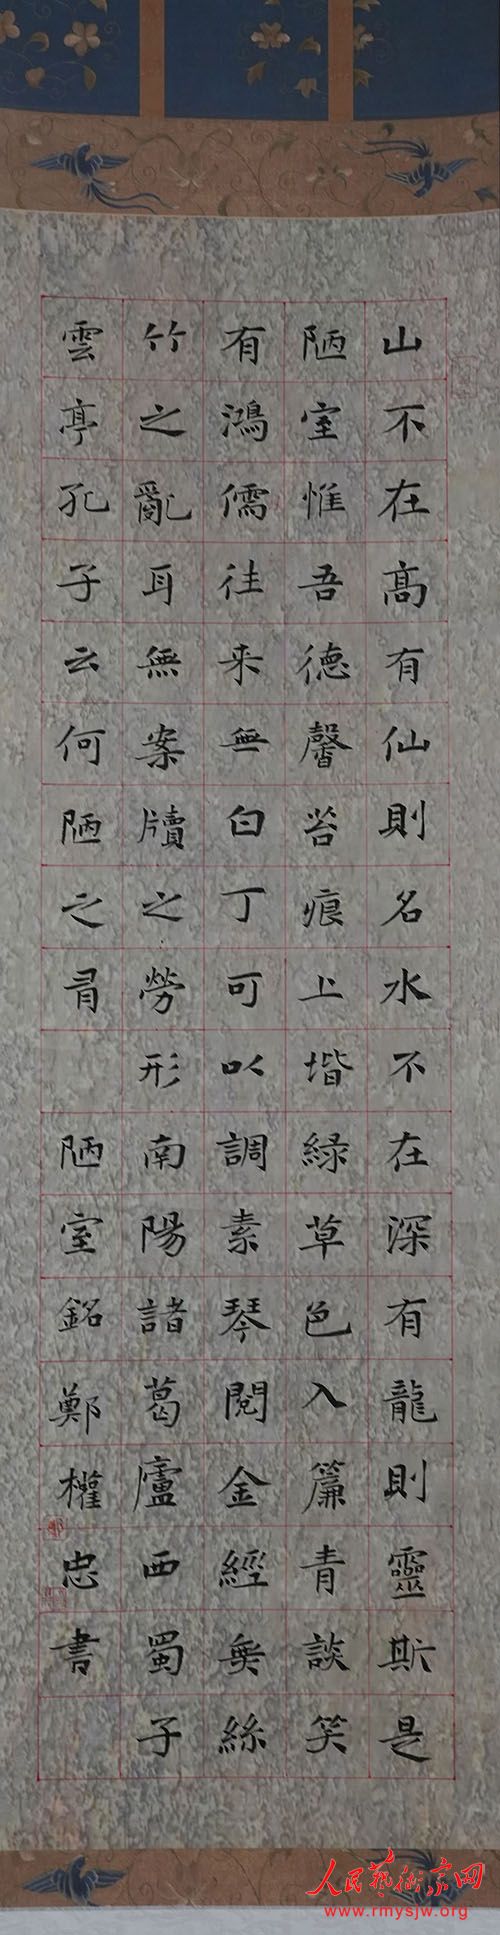 山不在高有仙則名水不在深有龍則靈斯是
陋室惟吾德馨苔痕上堦綠草色入簾青談笑
有鴻儒往来無白丁可以調素琴閱金經無絲
竹之亂耳無案牘之勞形南陽諸葛廬西蜀子
雲亭孔子云何陋之有 陋室銘鄭權忠書
人民藝術家网
www.rmysjw.org